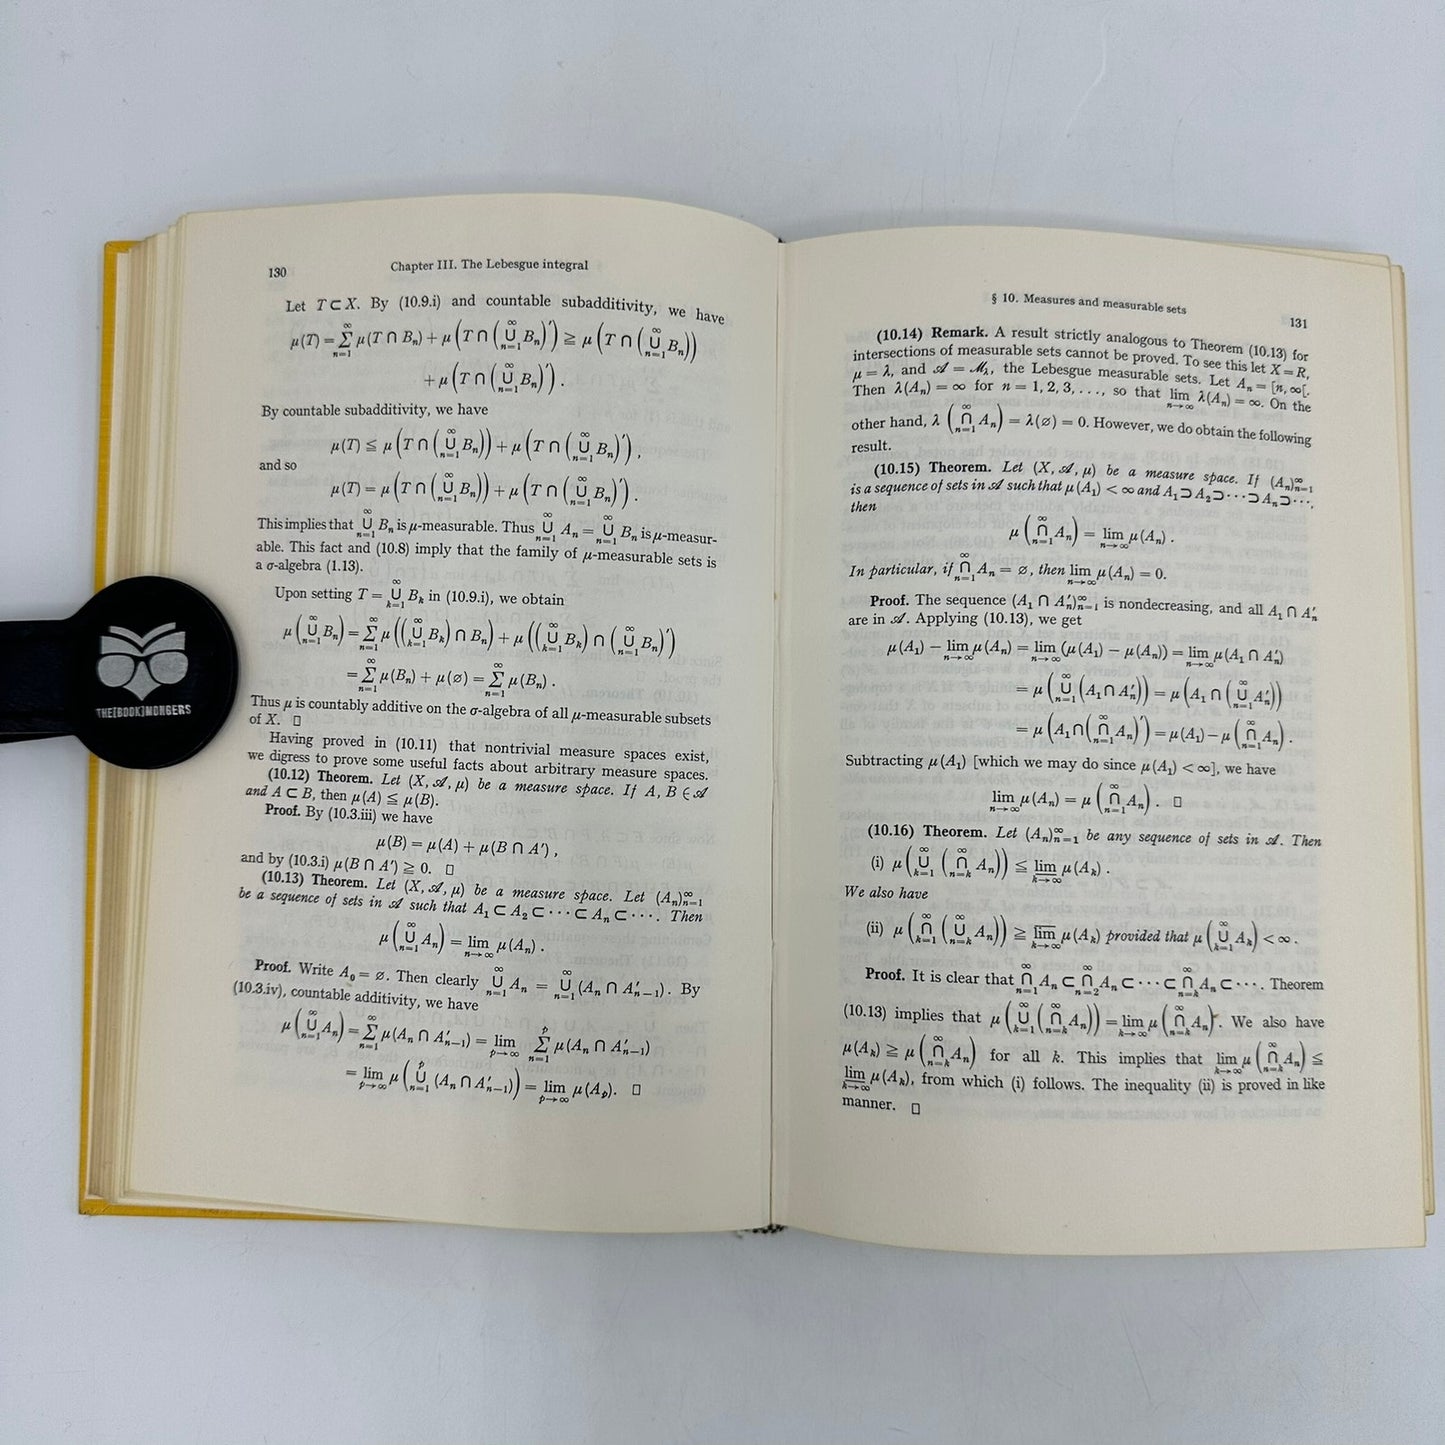 130
Chapter III. The Lebesgue integral
Let T ⊂ X. By (10.9.i) and countable subadditivity, we have
μ(T) = ∑_{n=1}^{∞} μ(T ∩ B_n) + μ(T ∩ (∪_{n=1}^{∞} B_n)′) ≧ μ(T ∩ (∪_{n=1}^{∞} B_n))
+ μ(T ∩ (∪_{n=1}^{∞} B_n)′) .
By countable subadditivity, we have
μ(T) ≦ μ(T ∩ (∪_{n=1}^{∞} B_n)) + μ(T ∩ (∪_{n=1}^{∞} B_n)′) ,
and so
μ(T) = μ(T ∩ (∪_{n=1}^{∞} B_n)) + μ(T ∩ (∪_{n=1}^{∞} B_n)′) .
This implies that ∪_{n=1}^{∞} B_n is μ-measurable. Thus ∪_{n=1}^{∞} A_n = ∪_{n=1}^{∞} B_n is μ-measur-
able. This fact and (10.8) imply that the family of μ-measurable sets is
a σ-algebra (1.13).
Upon setting T = ∪_{k=1}^{∞} B_k in (10.9.i), we obtain
μ(∪_{n=1}^{∞} B_n) = ∑_{n=1}^{∞} μ((∪_{k=1}^{∞} B_k) ∩ B_n) + μ((∪_{k=1}^{∞} B_k) ∩ (∪_{n=1}^{∞} B_n)′)
= ∑_{n=1}^{∞} μ(B_n) + μ(∅) = ∑_{n=1}^{∞} μ(B_n) .
Thus μ is countably additive on the σ-algebra of all μ-measurable subsets
of X. □
Having proved in (10.11) that nontrivial measure spaces exist,
we digress to prove some useful facts about arbitrary measure spaces.
(10.12) Theorem. Let (X, 𝒜, μ) be a measure space. If A, B ∈ 𝒜
and A ⊂ B, then μ(A) ≦ μ(B).
Proof. By (10.3.iii) we have
μ(B) = μ(A) + μ(B ∩ A′) ,
and by (10.3.i) μ(B ∩ A′) ≧ 0. □
(10.13) Theorem. Let (X, 𝒜, μ) be a measure space. Let (A_n)_{n=1}^{∞}
be a sequence of sets in 𝒜 such that A_1 ⊂ A_2 ⊂ ··· ⊂ A_n ⊂ ···. Then
μ(∪_{n=1}^{∞} A_n) = lim_{n→∞} μ(A_n) .
Proof. Write A_0 = ∅. Then clearly ∪_{n=1}^{∞} A_n = ∪_{n=1}^{∞} (A_n ∩ A′_{n−1}). By
(10.3.iv), countable additivity, we have
μ(∪_{n=1}^{∞} A_n) = ∑_{n=1}^{∞} μ(A_n ∩ A′_{n−1}) = lim_{p→∞} ∑_{n=1}^{p} μ(A_n ∩ A′_{n−1})
= lim_{p→∞} μ(∪_{n=1}^{p} (A_n ∩ A′_{n−1})) = lim_{p→∞} μ(A_p). □
THE[BOOK]MONGERS
§ 10. Measures and measurable sets
131
(10.14) Remark. A result strictly analogous to Theorem (10.13) for
intersections of measurable sets cannot be proved. To see this let X = R,
μ = λ, and 𝒜 = ℳ_λ, the Lebesgue measurable sets. Let A_n = [n, ∞[.
Then λ(A_n) = ∞ for n = 1, 2, 3, . . ., so that lim_{n→∞} λ(A_n) = ∞. On the
other hand, λ(∩_{n=1}^{∞} A_n) = λ(∅) = 0. However, we do obtain the following
result.
(10.15) Theorem. Let (X, 𝒜, μ) be a measure space. If (A_n)_{n=1}^{∞}
is a sequence of sets in 𝒜 such that μ(A_1) < ∞ and A_1 ⊃ A_2 ⊃ ··· ⊃ A_n ⊃ ···,
then
μ(∩_{n=1}^{∞} A_n) = lim_{n→∞} μ(A_n) .
In particular, if ∩_{n=1}^{∞} A_n = ∅, then lim_{n→∞} μ(A_n) = 0.
Proof. The sequence (A_1 ∩ A′_n)_{n=1}^{∞} is nondecreasing, and all A_1 ∩ A′_n
are in 𝒜. Applying (10.13), we get
μ(A_1) − lim_{n→∞} μ(A_n) = lim_{n→∞} (μ(A_1) − μ(A_n)) = lim_{n→∞} μ(A_1 ∩ A′_n)
= μ(∪_{n=1}^{∞} (A_1 ∩ A′_n)) = μ(A_1 ∩ (∪_{n=1}^{∞} A′_n))
= μ(A_1 ∩ (∩_{n=1}^{∞} A_n)′) = μ(A_1) − μ(∩_{n=1}^{∞} A_n) .
Subtracting μ(A_1) [which we may do since μ(A_1) < ∞], we have
lim_{n→∞} μ(A_n) = μ(∩_{n=1}^{∞} A_n) . □
(10.16) Theorem. Let (A_n)_{n=1}^{∞} be any sequence of sets in 𝒜. Then
(i) μ(∪_{k=1}^{∞} (∩_{n=k}^{∞} A_n)) ≦ \underline{lim}_{k→∞} μ(A_k) .
We also have
(ii) μ(∩_{k=1}^{∞} (∪_{n=k}^{∞} A_n)) ≧ \overline{lim}_{k→∞} μ(A_k) provided that μ(∪_{k=1}^{∞} A_k) < ∞ .
Proof. It is clear that ∩_{n=1}^{∞} A_n ⊂ ∩_{n=2}^{∞} A_n ⊂ ··· ⊂ ∩_{n=k}^{∞} A_n ⊂ ···. Theorem
(10.13) implies that μ(∪_{k=1}^{∞} (∩_{n=k}^{∞} A_n)) = lim_{k→∞} μ(∩_{n=k}^{∞} A_n). We also have
μ(A_k) ≧ μ(∩_{n=k}^{∞} A_n) for all k. This implies that lim_{k→∞} μ(∩_{n=k}^{∞} A_n) ≦
\underline{lim}_{k→∞} μ(A_k), from which (i) follows. The inequality (ii) is proved in like
manner. □